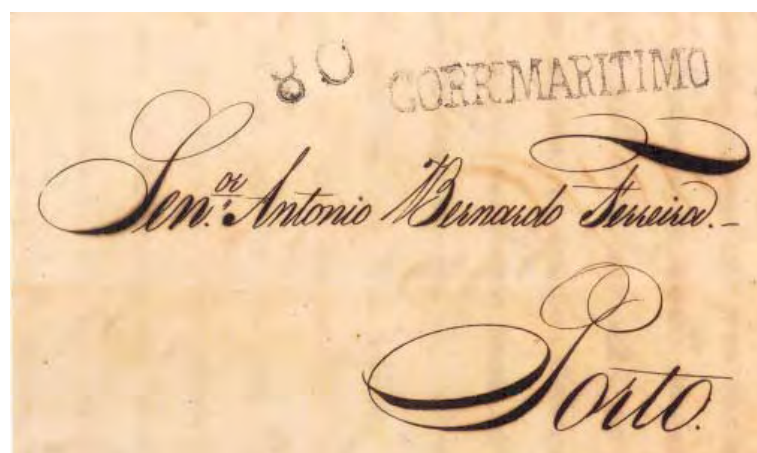 80 CORRº MARITIMO
Sen.ᵒʳ Antonio Bernardo Ferreira.–
Porto.